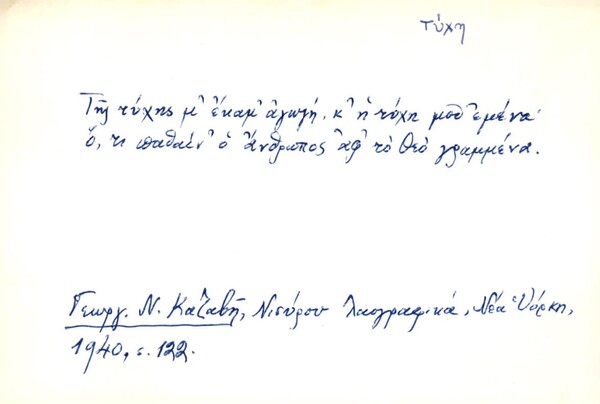 τύχη
Τῆς τύχης μ' ἔκαμ' ἀγωγή, κ' ἡ τύχη μοῦ ἐμένα·
ὅ,τι παθαίν' ὁ ἄνθρωπος ἀφ' τὸ Θεὸ γραμμένα.
Γεωργ. Ν. Καζαβῆ, Νισύρου Λαογραφικά, Νέα Ὑόρκη,
1940, σ. 122.